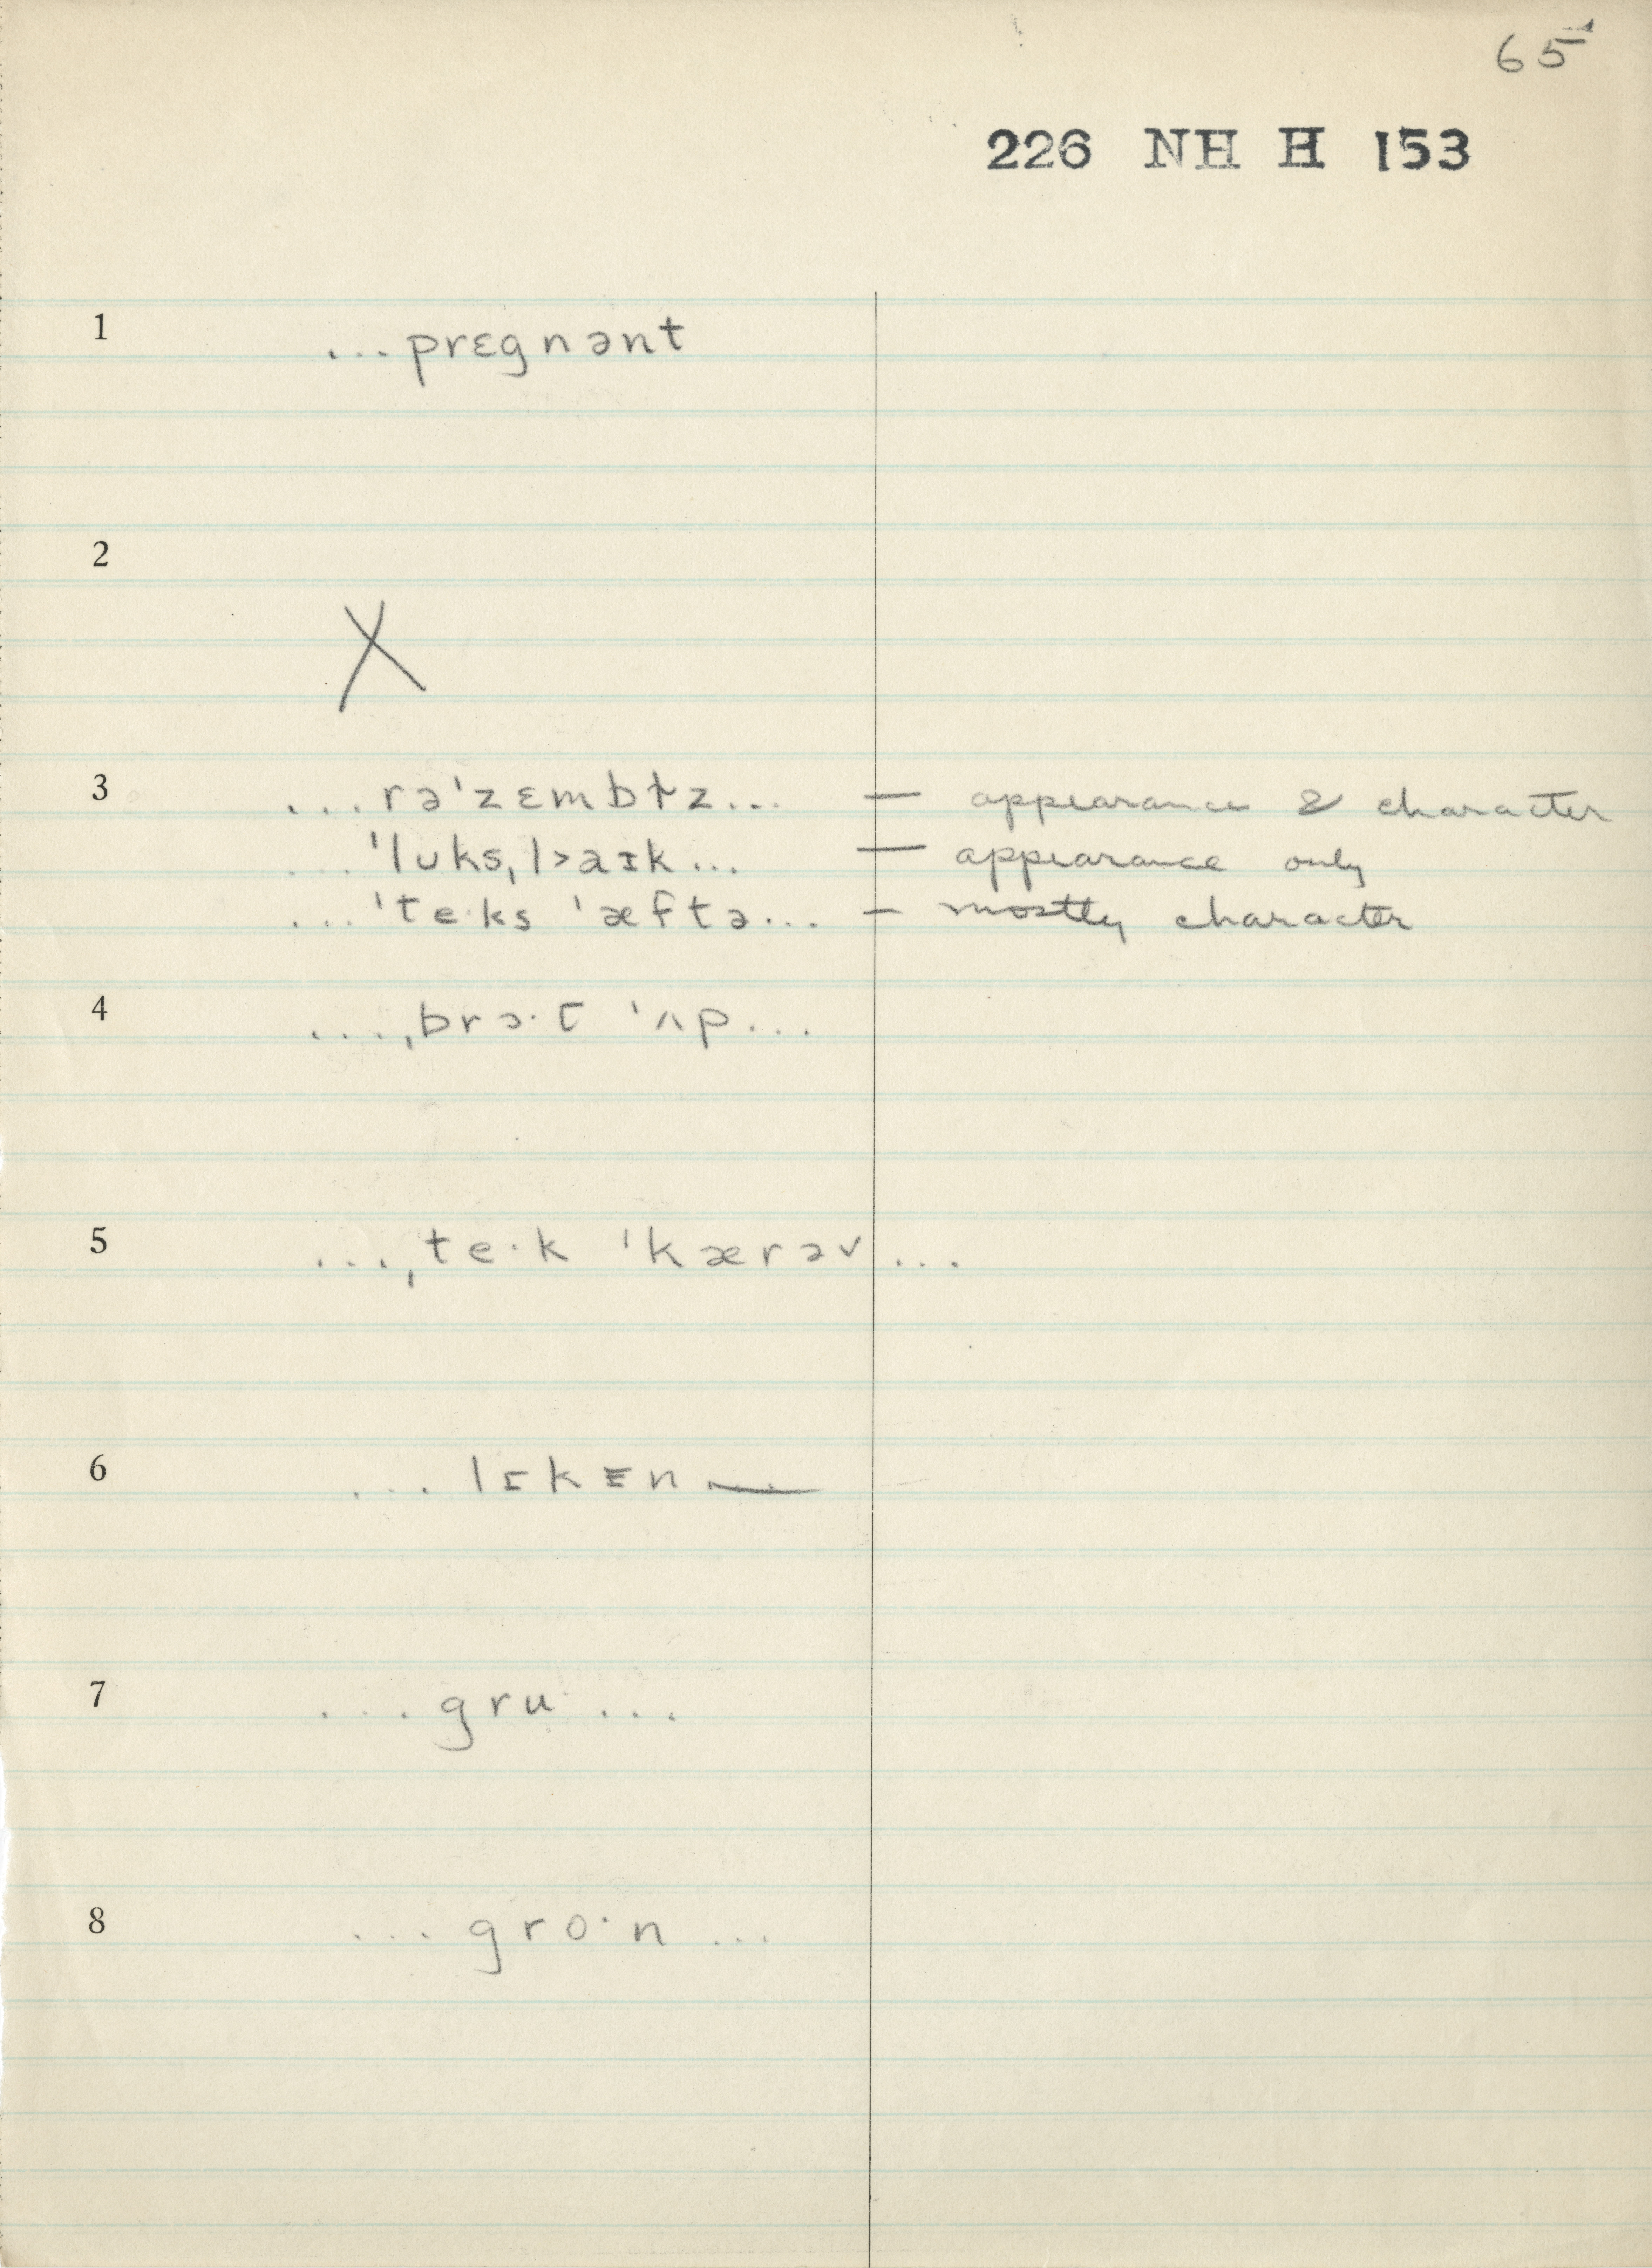 65
226 NH H 153
1 ...prɛgnənt
2
X
3 ...rə'zɛmbɫz... — appearance & character
...'lʊks,l>aɪk... — appearance only
...'te·ks 'æftə... — mostly character
4 ...,brɔ·t 'ʌp...
5 ...,te·k 'kærəv...
6 ...lɪkᴇn—
7 ...gru·...
8 ...gro·n...